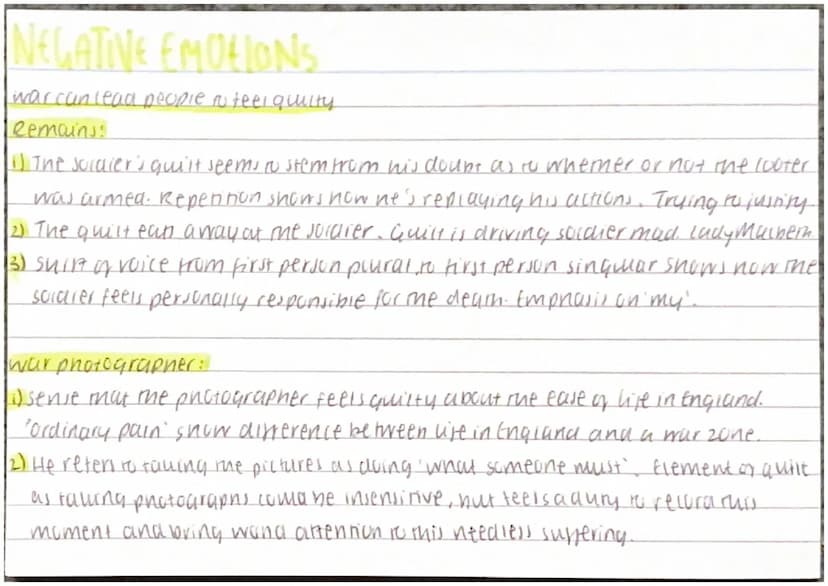 NEGATIVE EMOTIONS
war can lead people to feel guilty
Remains:
1) The soldier's guilt seems to stem from his doubt as to whether or not the looter
was armed. Repetition shows how he's replaying his actions. Trying to justify
2) The guilt eats away at the soldier. Guilt is driving soldier mad. Lady Macbeth
3) Shift of voice from first person plural to first person singular shows how the
soldier feels personally responsible for the death. Emphasis on 'my'.
war photographer:
1) Sense that the photographer feels guilty about the ease of life in England.
'ordinary pain' show difference between life in England and a war zone.
2) He refers to taking the pictures as doing 'what someone must'. Element of guilt
as taking photographs could be insensitive, but feels a duty to record this
moment and bring world attention to this needless suffering.